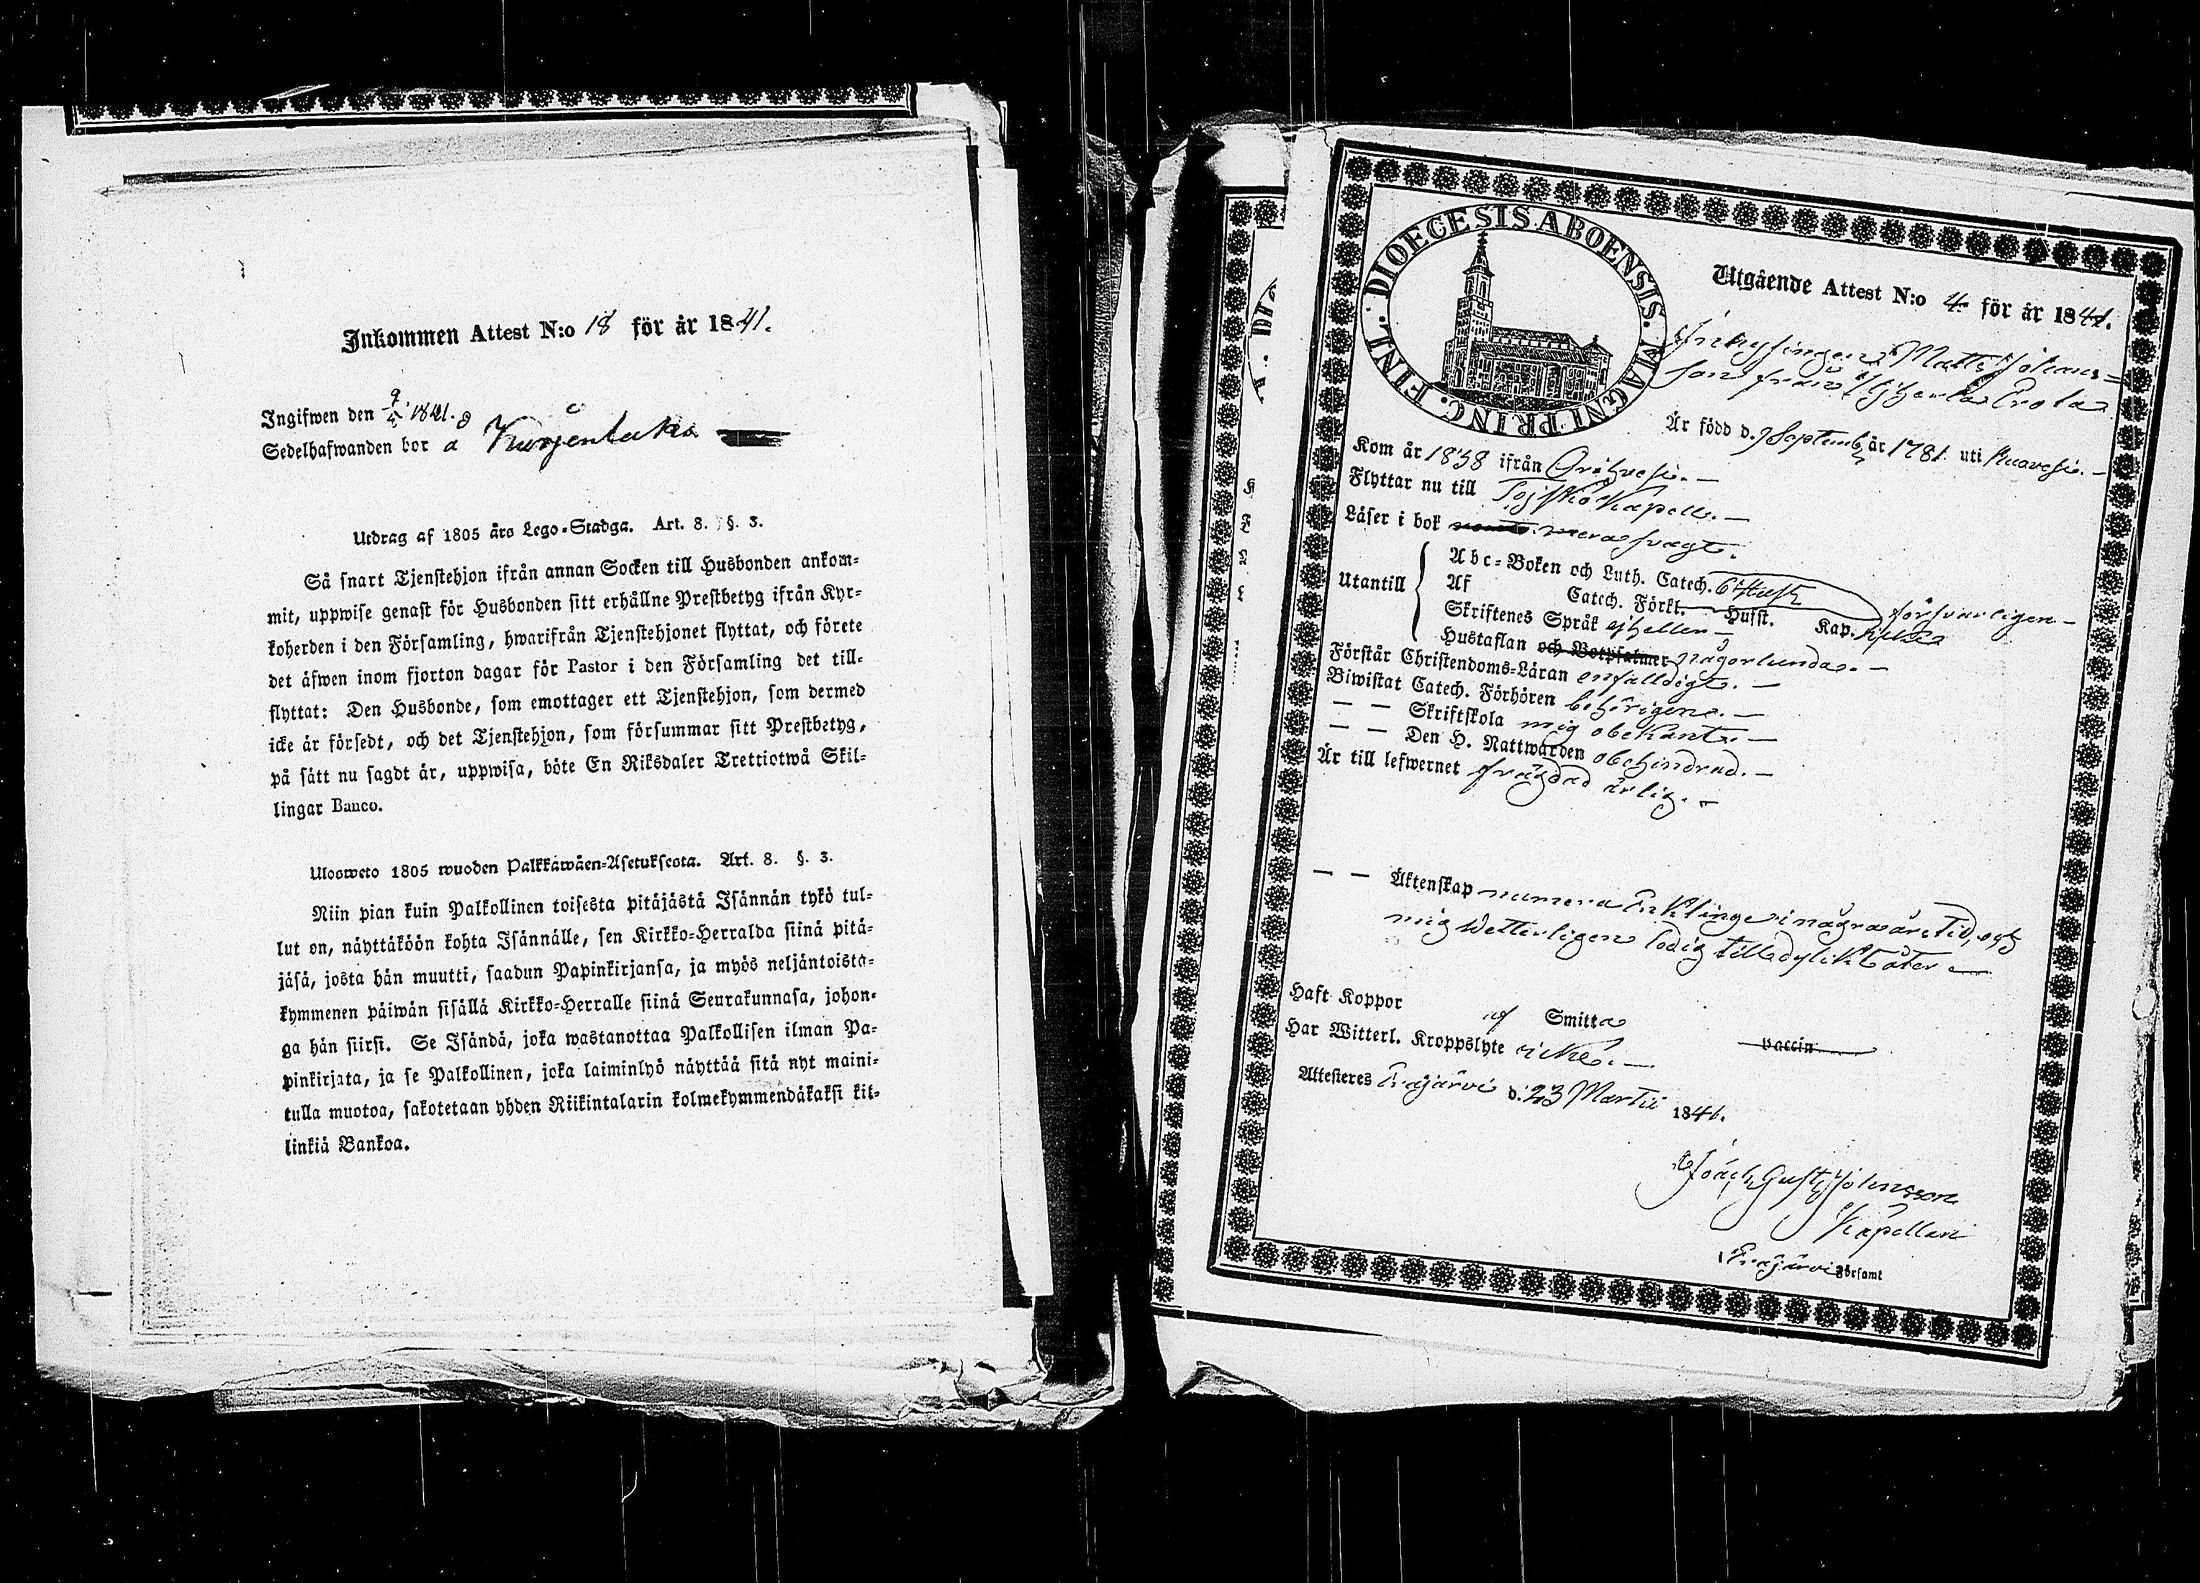 Inkommen Attest N:o 18 för år 1841.
Ingifwen den 9/5 1841.
Sedelhafwanden bor å Kurjenluku
Utdrag af 1805 års Lego-Stadga. Art. 8. §. 3.
Så snart Tjenstehjon ifrån annan Socken till Husbonden ankom-
mit, uppwise genast för Husbonden sitt erhållne Prestbetyg ifrån Kyr-
koherden i den Församling, hwarifrån Tjenstehjonet flyttat, och förete
det äfwen inom fjorton dagar för Pastor i den Församling det till-
flyttat: Den Husbonde, som emottager ett Tjenstehjon, som dermed
icke är försedt, och det Tjenstehjon, som försummar sitt Prestbetyg,
på sätt nu sagdt är, uppwisa, böte En Riksdaler Trettiotwå Skil-
lingar Banco.
Uloosweto 1805 wuoden Palkkawäen-Asetuksesta. Art. 8. §. 3.
Niin pian kuin Palkollinen toisesta pitäjästä Isännän tykö tul-
lut on, näyttäköön kohta Isännälle, sen Kirkko-Herralda siinä pitä-
jäsä, josta hän muutti, saadun Papinkirjansa, ja myös neljäntoista-
kymmenen päiwän sisällä Kirkko-Herralle siinä Seurakunnasa, johon-
ga hän siirsi. Se Isändä, joka wastanottaa Palkollisen ilman Pa-
pinkirjata, ja se Palkollinen, joka laiminlyö näyttää sitä nyt maini-
tulla muotoa, sakotetaan yhden Riikintalarin kolmekymmendäkaksi kil-
linkiä Bankoa.
DIOECESIS. ABOENSIS. MAGNI. PRINC. FINL.
Utgående Attest N:o 4 för år 1841.
Inhysingen Matts Johans-
son från
Är född d. 9 Septemb. år 1781 uti Kuorevesi.
Kom år 1838 ifrån Orihvesi.
Flyttar nu till Kapell.
Läser i bok mera swagt.
Utantill
Abc-Boken och Luth. Catech. 6 Styck
Af Catech. Förkl. Husst. Kap. försvarligen
Skriftenes Språk ejheller
Hustaflan och Botpsalmer någorlunda.
Förstår Christendoms-Läran enfalldigt.
Biwistat Catech. Förhören behörigen.
— — Skriftskola mig obekant.
— — Den H. Nattwarden obehindrad.
Är till lefwernet frägdad ärlig.
— — Äktenskap numera Enkling i några års tid, och
mig wetterligen ledig till dylikt åter
Haft Koppor af Smitta vaccin
Har Witterl. Kroppslyte icke.
Attesteres Eräjärvi d. 23 Martii 1841.
Joach. Gust. Johnsson
Kapellan
i Eräjärvi Församl